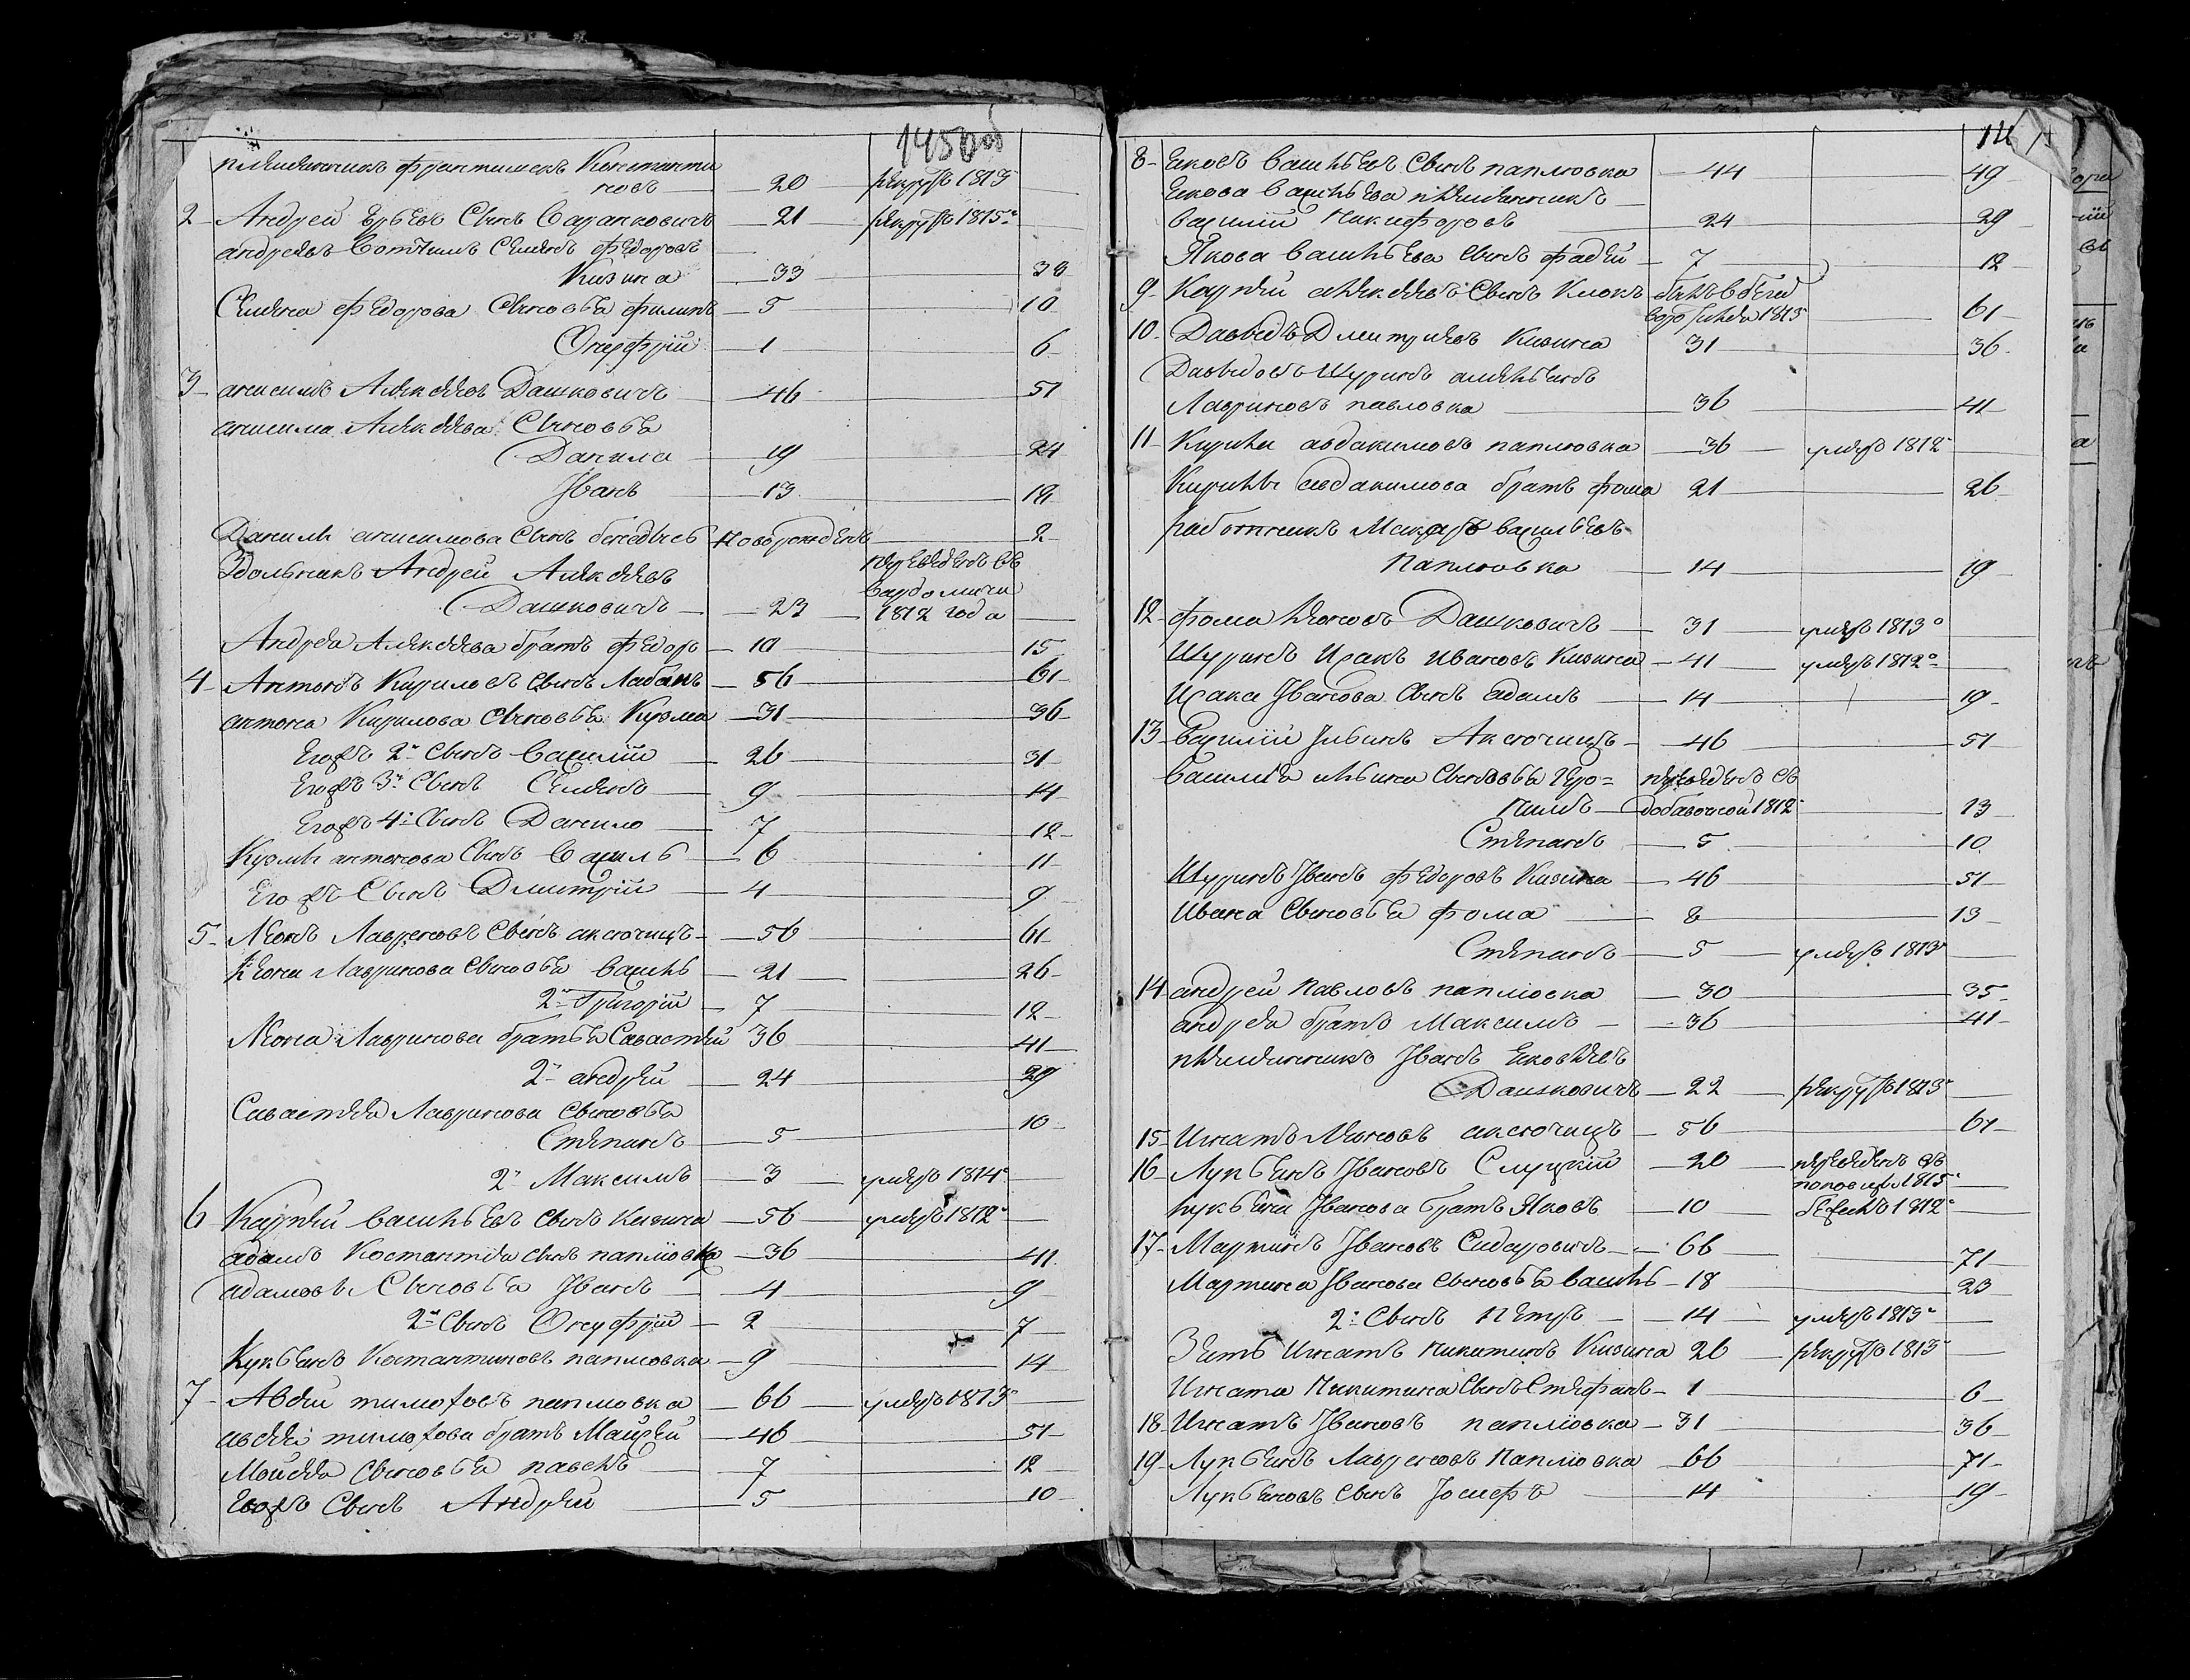 1450об
племянникъ франтишекъ Константи
новъ 20 рекрутъ 1813
2 Андрей Юрьевъ Сынъ Саранковичъ 21 рекрутъ 1815
андреевъ Семенъ федоровъ
Кизина 33 38
Семена федорова Сыновья филипъ 5 10
Онуфрій 1 6
3 анисимъ Алексеевъ Дашковичъ 46 51
анисима Алексеева Сыновья
Данила 19 24
Іванъ 13 18
Данилы анисимова Сынъ новорожденъ 2
Здольникъ Андрей Алексеевъ переведенъ въ
Дашковичъ 23 1812 года
Андрея Алексеева братъ федоръ 10 15
4 Антонъ Кириловъ Сынъ Лабанъ 56 61
антона Кирилова Сыновья Кузма 31 36
Егожъ 2й Сынъ Василій 26 31
Егожъ 3й Сынъ Семенъ 9 14
Егожъ 4й Сынъ Данило 7 12
Кузмы антонова Сынъ Василь 6 11
Егожъ Сынъ Дмитрій 4 9
5 Леонъ Лавреновъ Сынъ аксючицъ 56 61
Леона Лавринова Сыновья Василь 21 26
2й Григорій 7 12
Леона Лавринова братья Савастей 36 41
2й андрей 24 29
Савастея Лавринова Сыновья
Степанъ 5 10
2й Максимъ 3 умеръ 1814
6 Карпей Васильевъ Сынъ Кизина 56 умеръ 1812
адамъ Костантиа Сынъ паплювка 36 41
адамовы Сыновья Іванъ 4 9
2й Сынъ Онуфрій 2 7
Лукьянъ Костантиновъ паплювка 9 14
7 Авдеи тимоховъ паплювка 66 умеръ 1813
авдея тимохова братъ Мойсей 46 51
Мойсея Сыновья павелъ 7 12
Егожъ Сынъ Андрей 5 10
8 Яковъ Васильевъ Сынъ паплювка 44 49
Якова Васильева племянникъ
Василій Никифоровъ 24 29
Якова Васильева Сынъ фадей 7 12
9 Карпей алексеевъ Сынъ Клокъ былъ в бегах
1815 61
10 Давыдъ Дмитриевъ Кизина 31 36
Давыдовъ Шуринъ
Лавриновъ павловка 36 41
11 Кирилы авдакимовъ паплювка 36 умеръ 1812
Кирилы авдакимова братъ фома 21 26
работникъ Макаръ Васильевъ
паплювка 14 19
12 фома Леоновъ Дашковичъ 31 умеръ 1813
Шуринъ Исакъ Ивановъ Кизина 41 умеръ 1812
Исака Іванова Сынъ адамъ 14 19
13 Василій Ильинъ Аксючицъ 46 51
Василія ильина Сыновья Іеро= переведенъ съ
нимъ добавочной 1812 13
Степанъ 5 10
Шуринъ Іванъ федоровъ Кизина 46 51
Ивана Сыновья фома 8 13
Степанъ 5 умеръ 1813
14 андрей павловъ паплювка 30 35
андрея братъ Максимъ 36 41
племянникъ Іванъ Яковлевъ
Дашковичъ 22 рекрутъ 1813
15 Игнатъ Леоновъ аксючицъ 56 61
16 Лукьянъ Івановъ Слуцкій 20 переведенъ въ
1815
лукьяна Іванова братъ Яковъ 10 бежалъ 1812
17 Мартинъ Івановъ Сидаровичъ 66 71
Мартина Іванова Сыновья Василь 18 23
2й Сынъ Петръ 14 умеръ 1813
Зять Игнатъ никитинъ Кизина 26 рекрутъ 1813
Игната Никитина Сынъ Стефанъ 1 6
18 Игнатъ Івановъ паплювка 31 36
19 Лукьянъ Лавреновъ Паплювка 66 71
Лукьяновъ Сынъ Іосифъ 14 19